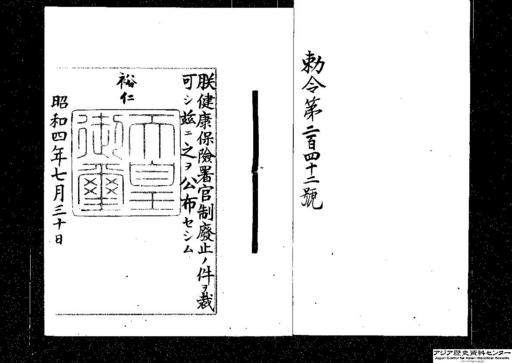 勅令第二百四十二號
朕健康保險署官制廢止ノ件ヲ裁
可シ茲ニ之ヲ公布セシム
裕仁
天皇御璽
昭和四年七月三十日
アジア歴史資料センター
Japan Center for Asian Historical Records